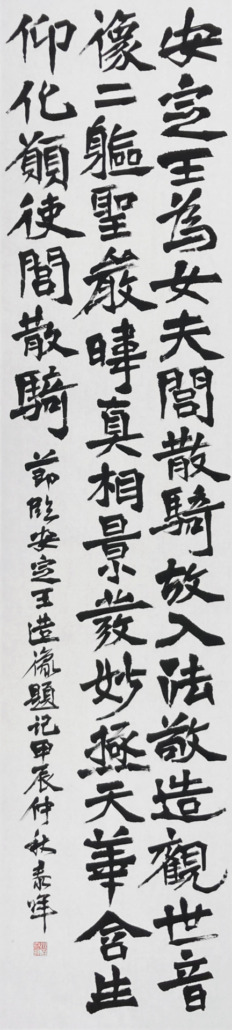 安定王為女夫閭散騎故入法敬造觀世音
像二軀聖嚴暐真相景發妙極天華含生
仰化願使閭散騎
節臨安定王造像題記甲辰仲秋泰暐